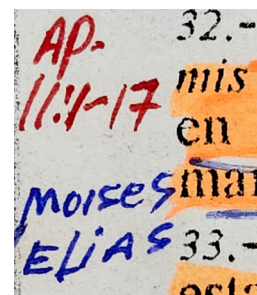 AP.
11:1-17
MOISES
ELIAS
32.-
mis
en
33.-